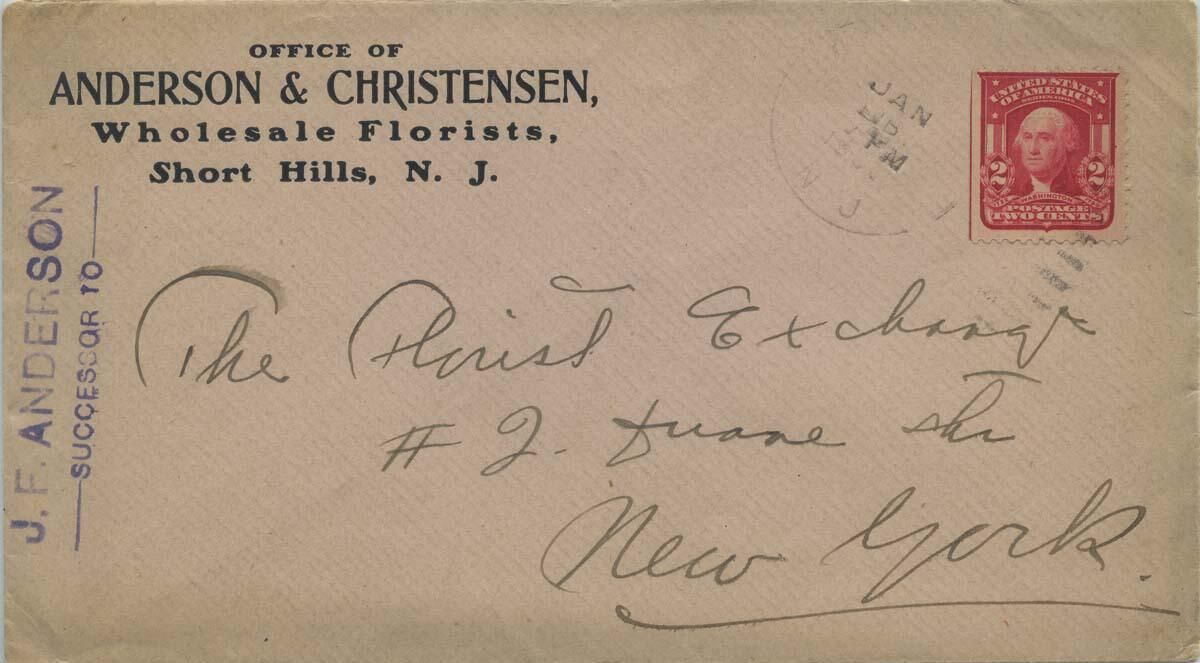 OFFICE OF
ANDERSON & CHRISTENSEN,
Wholesale Florists,
Short Hills, N. J.
J. F. ANDERSON
SUCCESSOR TO
JAN
PM
N J
UNITED STATES
OF AMERICA
SERIES 1902
2 2
WASHINGTON
POSTAGE
TWO CENTS
The Florist Exchange
# 2. Duane Str
New York.